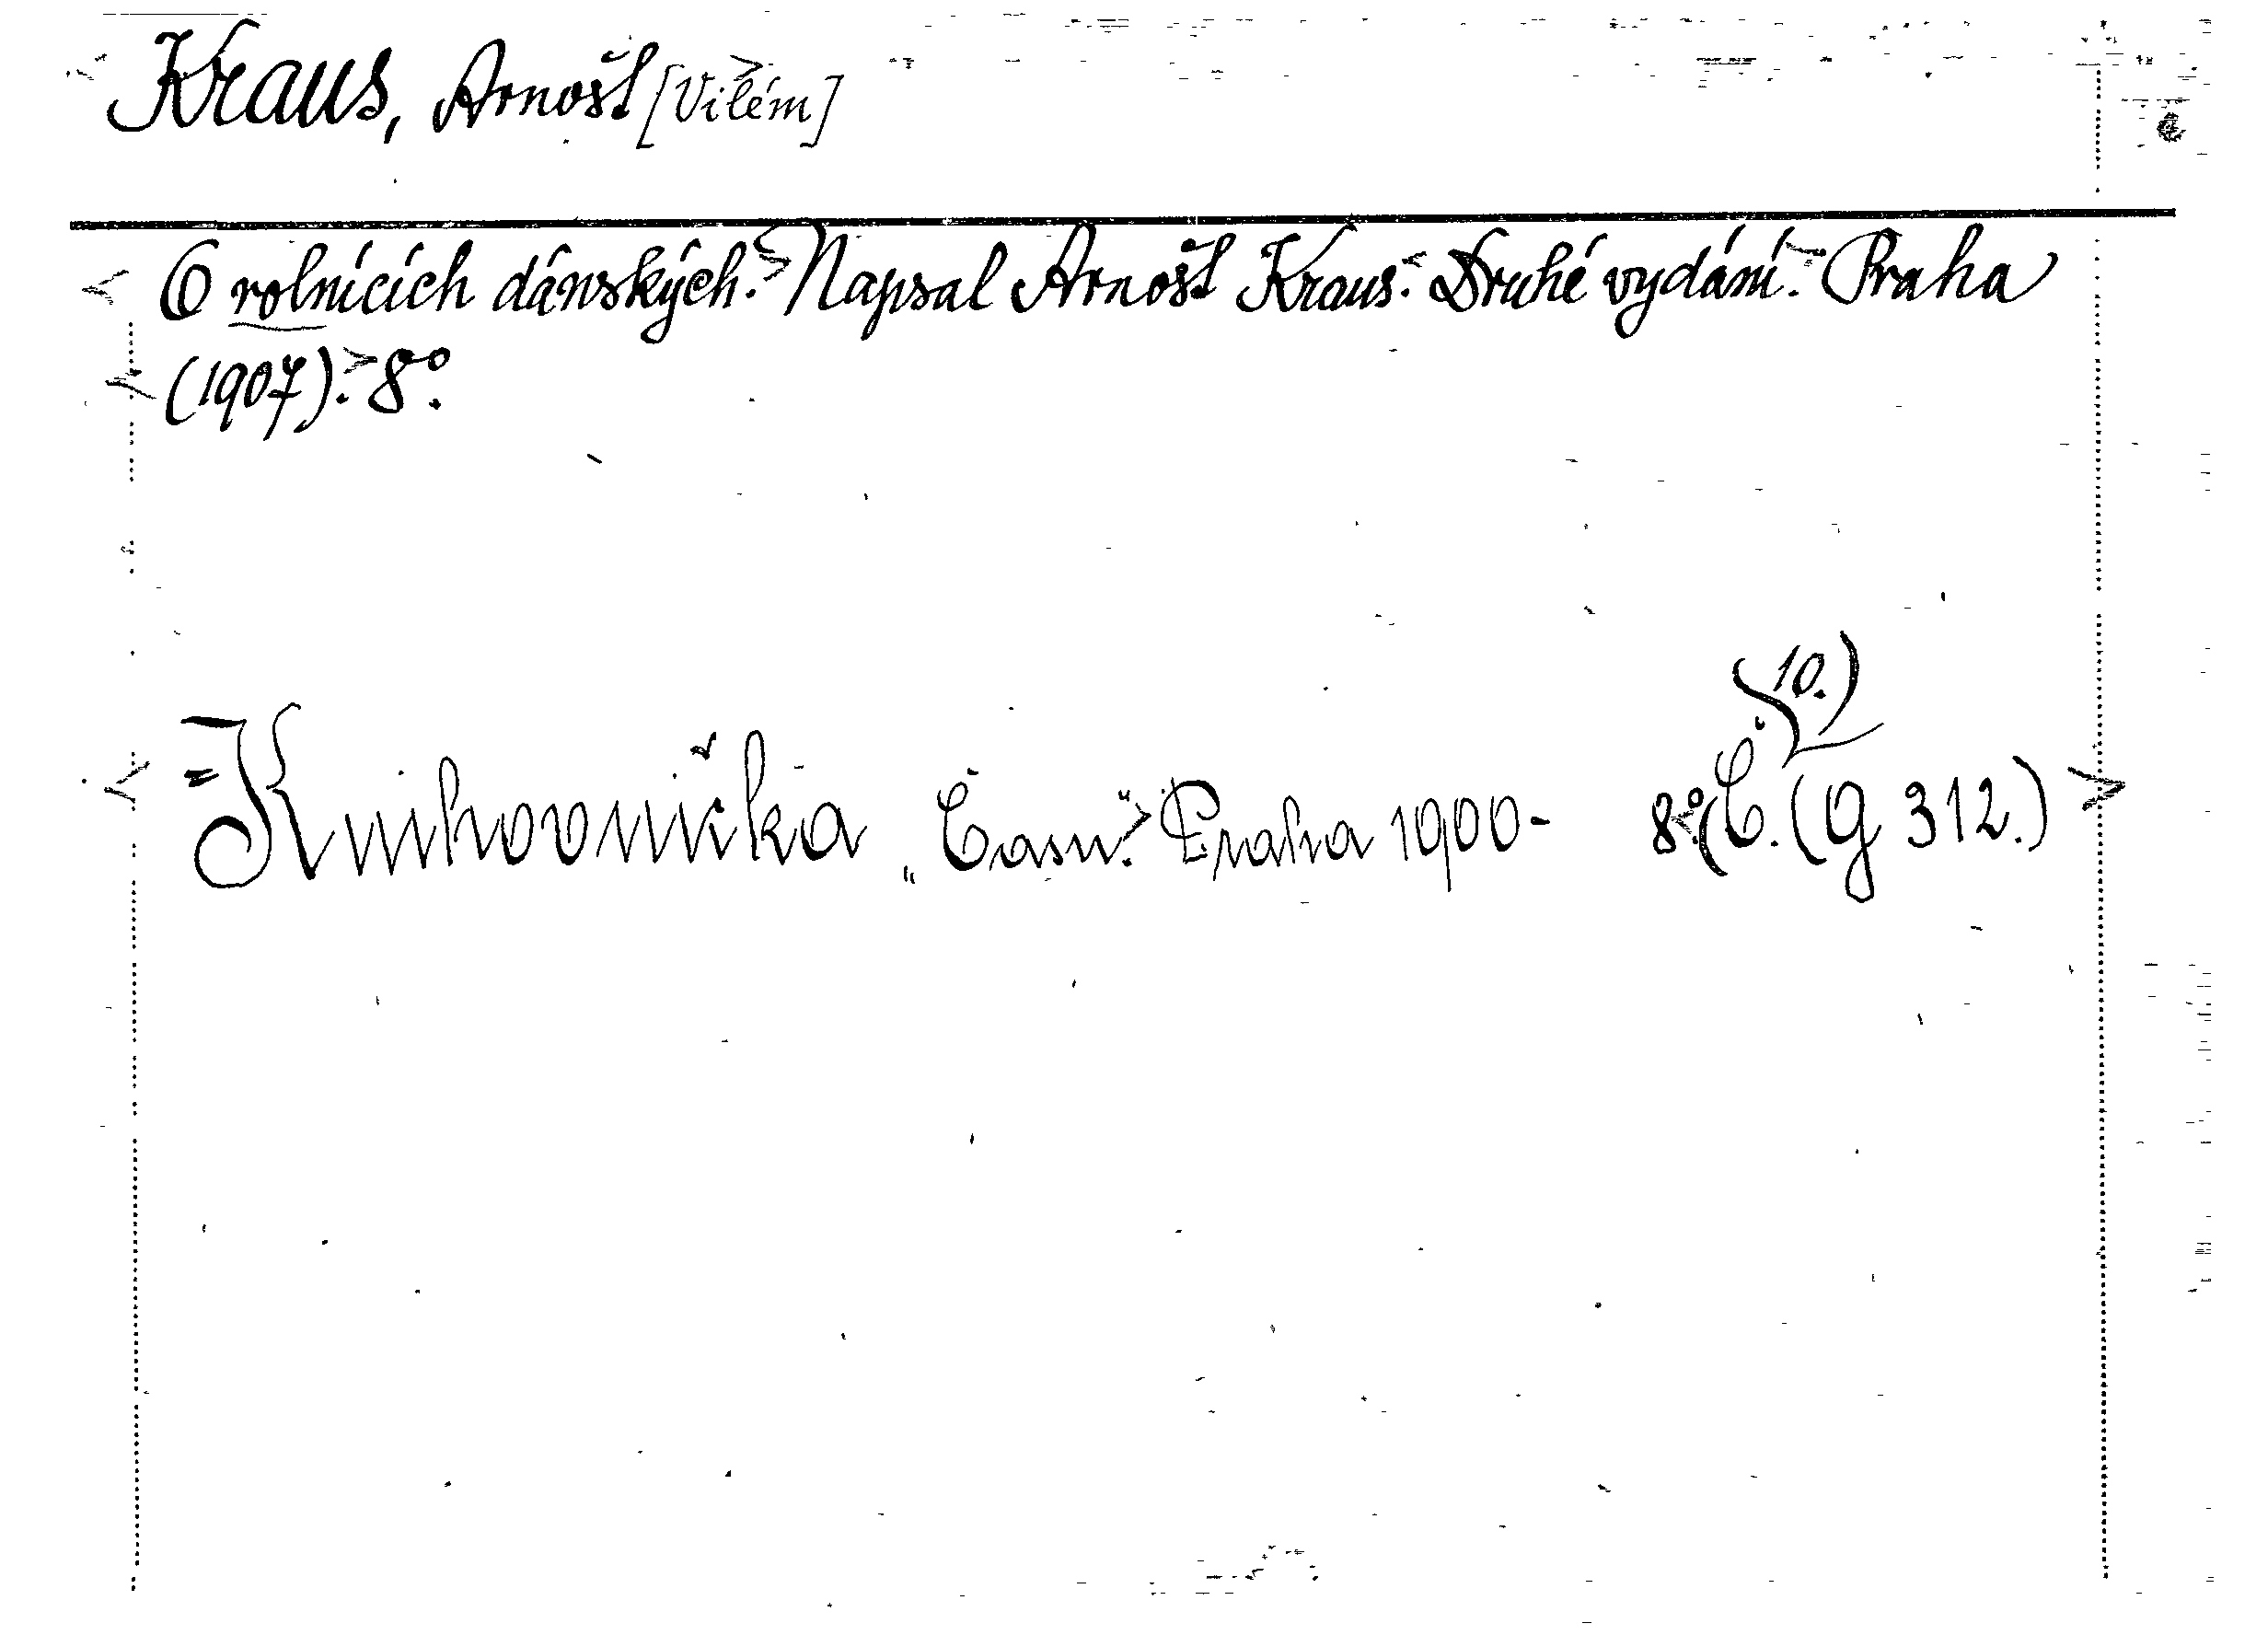 Kraus, Arnošt [Vilém]
O rolnících dánských. Napsal Arnošt Kraus. Druhé vydání. Praha
(1907). 8°.
(10.)
= Knihovnička „Času.“ Praha 1900- 8°. (Č. (G 312.)